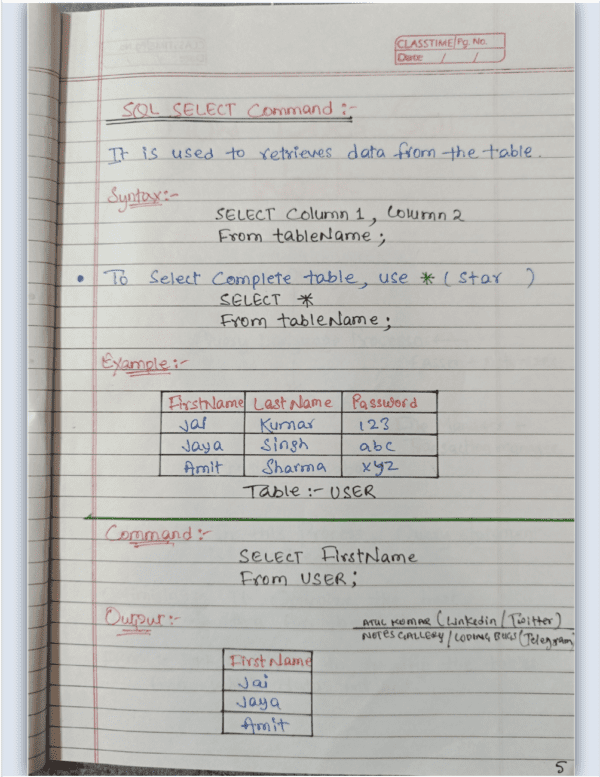 CLASSTIME Pg. No.
Date / /
SQL SELECT Command :-
It is used to retrieves data from the table.
Syntax:-
SELECT Column 1, Column 2
From tableName;
• To Select Complete table, use * (Star )
SELECT *
From tableName;
Example:-
FirstName LastName Password
Jai Kumar 123
Jaya Singh abc
Amit Sharma xyz
Table :- USER
Command:-
SELECT FirstName
From USER;
Output:-
ATUL KUMAR (Linkedin/Twitter)
NOTES GALLERY / CODING BUGS (Telegram)
First Name
Jai
Jaya
Amit
5